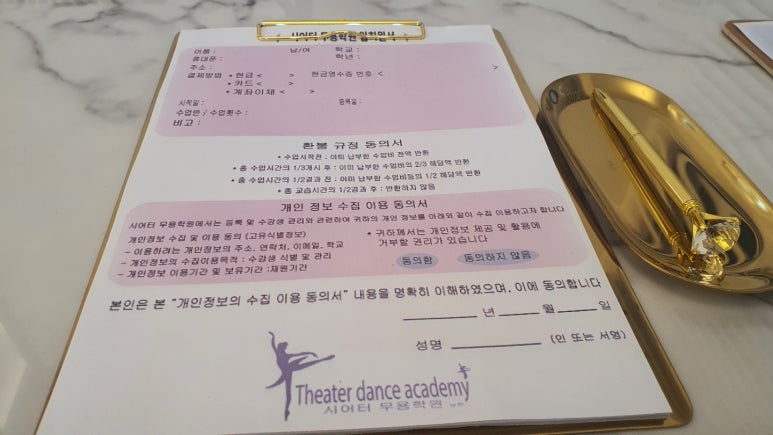 시어터 무용학원 입회원서
이름 : 남/여 학교 :
휴대폰 : 학년 :
주소 : >
결제방법 • 현금 < > 현금영수증 번호 <
• 카드 < >
• 계좌이체 < >
시작일 : 등록일 :
수업반 / 수업횟수 :
비고 :
환불 규정 동의서
• 수업시작전 : 이미 납부한 수업비 전액 반환
• 총 수업시간의 1/3개시 후 : 이미 납부한 수업비의 2/3 해당액 반환
• 총 수업시간의 1/2경과 전 : 이미 납부한 수업비등의 1/2 해당액 반환
• 총 교습시간의 1/2경과 후 : 반환하지 않음
개인 정보 수집 이용 동의서
시어터 무용학원에서는 등록 및 수강생 관리와 관련하여 귀하의 개인 정보를 아래와 같이 수집 이용하고자 합니다
개인정보 수집 및 이용 동의 (고유식별정보)
- 이용하려는 개인정보의 주소, 연락처, 이메일, 학교
- 개인정보의 수집이용목적 : 수강생 식별 및 관리
- 개인정보 이용기간 및 보유기간 :재원기간
* 귀하께서는 개인정보 제공 및 활용에
거부할 권리가 있습니다
동의함 동의하지 않음
본인은 본 “개인정보의 수집 이용 동의서” 내용을 명확히 이해하였으며, 이에 동의합니다
년 월 일
성명 (인 또는 서명)
Theater dance academy
시어터 무용학원